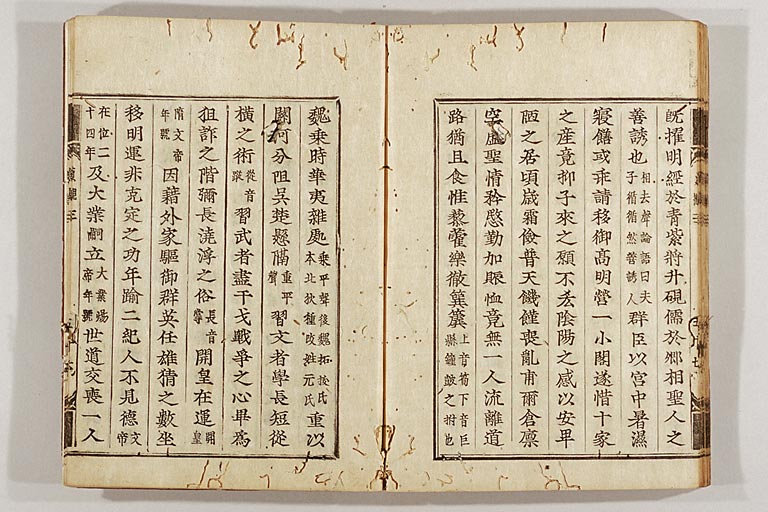 既擢明經於青紫將升碩儒於卿相聖人之
善誘也相去聲論語曰夫子循循然善誘人群臣以宮中暑濕
寢饍或乖請移御高明營一小閣遂惜十家
之產竟抑子來之願不吝陰陽之感以安卑
陋之居頃歲霜儉普天饑饉喪亂甫爾倉廩
空虛聖情矜愍勤加賑恤竟無一人流離道
路猶且食惟藜藿樂徹簨簴上音筍下音巨縣鐘鼓之柎也
魏乘時華夷雜處乘平聲後魏拓拔氏本北狄種改姓元氏重以
關河分阻吳楚懸隔重平聲習文者學長短從
橫之術從音蹤習武者盡干戈戰爭之心畢爲
狙詐之階彌長澆浮之俗長音掌開皇在運開皇
隋文帝年號因藉外家驅御群英任雄猜之數坐
移明運非克定之功年踰二紀人不見德文帝
在位二十四年及大業嗣立大業煬帝年號世道交喪一人